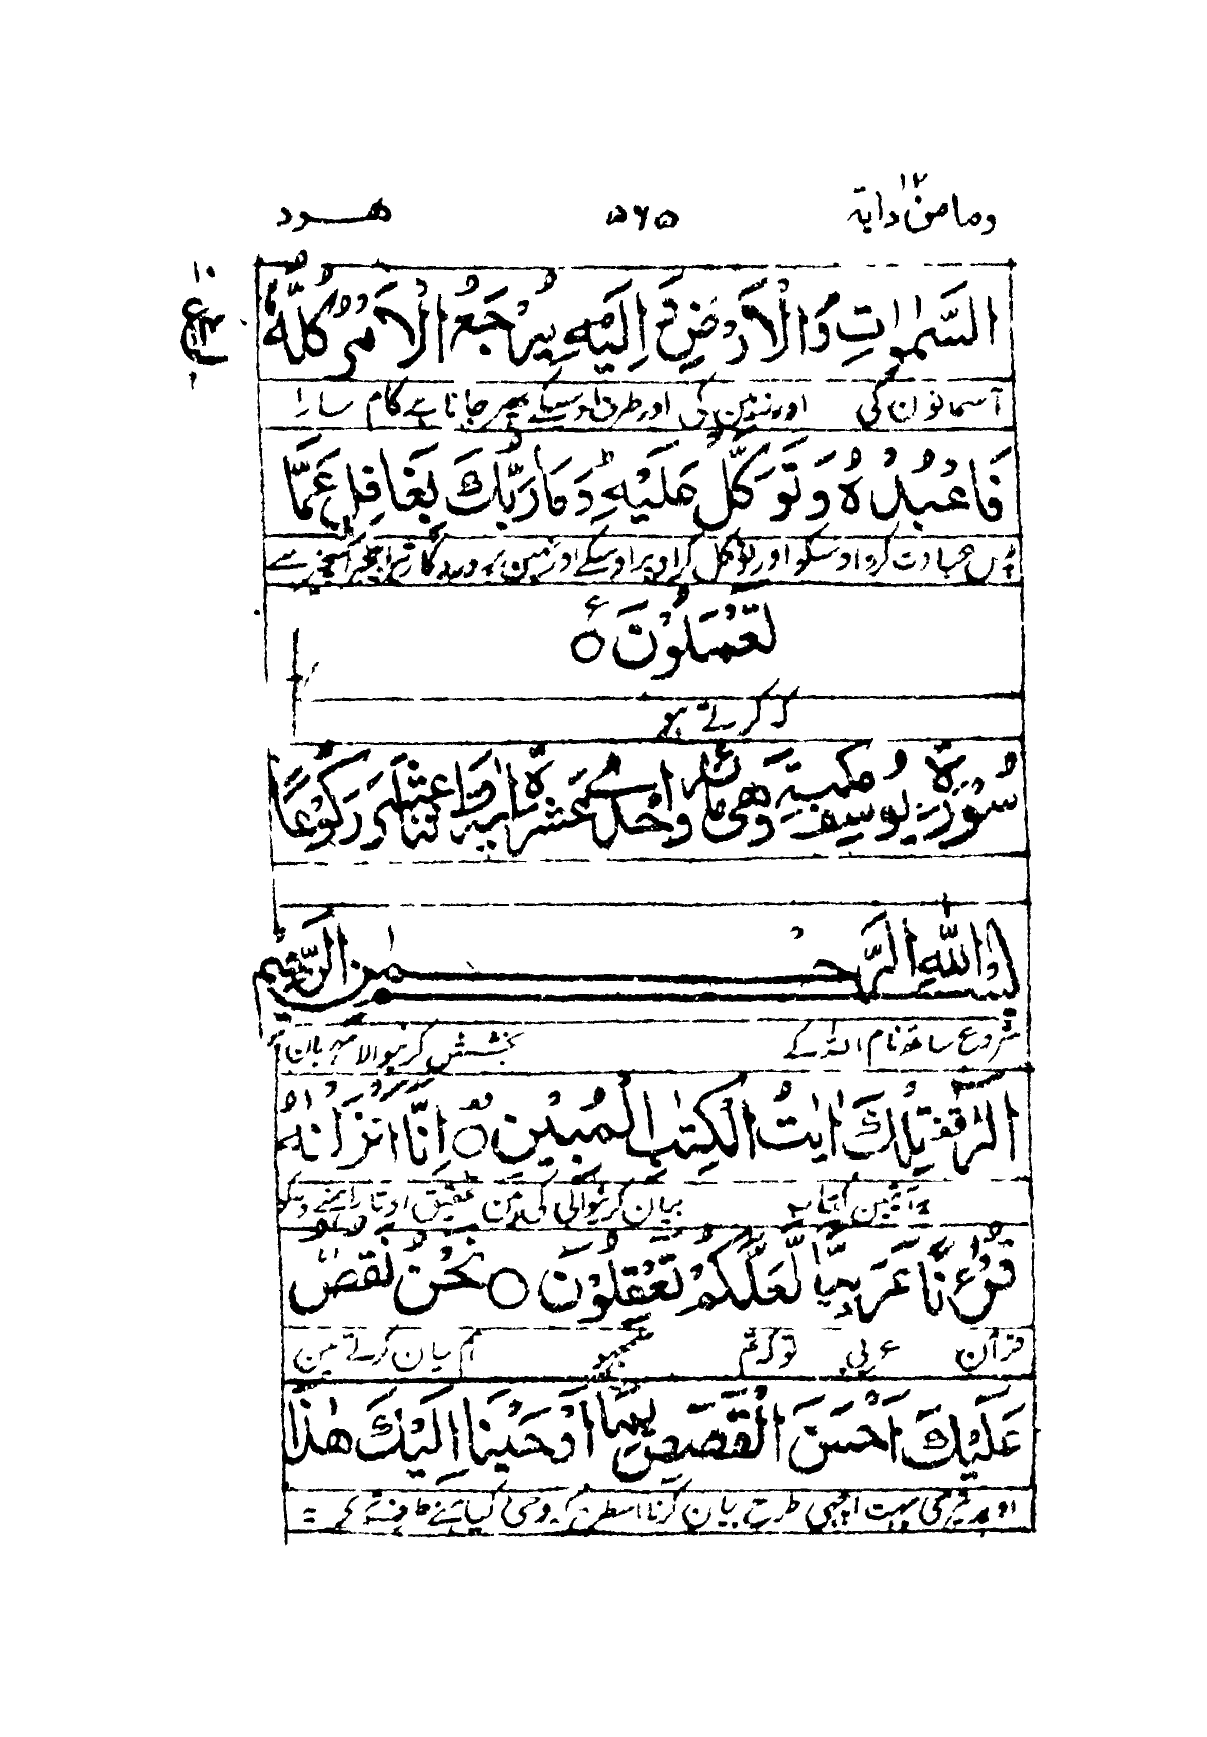 وما من دابة ١٢
٥٦٥
هود
السَّمٰوٰتِ وَالْاَرْضِ وَ اِلَيْهِ يُرْجَعُ الْاَمْرُ كُلُّهٗ
آسمانون کی اور زمین کی اور طرف اوسیکے پھیر جاتا ہے کام سارا
فَاعْبُدْهُ وَ تَوَكَّلْ عَلَيْهِ وَمَا رَبُّكَ بِغَافِلٍ عَمَّا
پس عبادت کرو اوسکو اور توکل کر اوپر اوسکے اور نہین پروردگار تیرا بیخبر اسچیز سے
تَعْمَلُوْنَ ○ ع
کہ کرتے ہو
سُوْرَةُ يُوسُفَ مَكِّيَّةٌ وَهِيَ مِائَةٌ وَاِحْدٰى عَشْرَةَ اٰيَةً وَاثْنَا عَشَرَ رُكُوْعًا
بسم الله الرَّحْمٰنِ الرَّحِيْمِ
شروع ساتھ نام اللہ کے بخشش کرنیوالا مہربان
الٓرٰ قف تِلْكَ اٰيٰتُ الْكِتٰبِ الْمُبِيْنِ ○ اِنَّا اَنْزَلْنٰهُ
یہ آیتین کتاب بیان کرنیوالی کی ہین تحقیق اوتارا ہمنے اسکو
قُرْءٰنًا عَرَبِيًّا لَّعَلَّكُمْ تَعْقِلُوْنَ ○ نَحْنُ نَقُصُّ
قرآن عربی تو کہ تم سمجھو ہم بیان کرتے ہین
عَلَيْكَ اَحْسَنَ الْقَصَصِ بِمَا اَوْحَيْنَا اِلَيْكَ هٰذَا
اوپر تیری بہت اچھی طرح بیان کرنا اسطرح کہ وحی کیا ہمنے طرف تیری یہ
١٠
ع